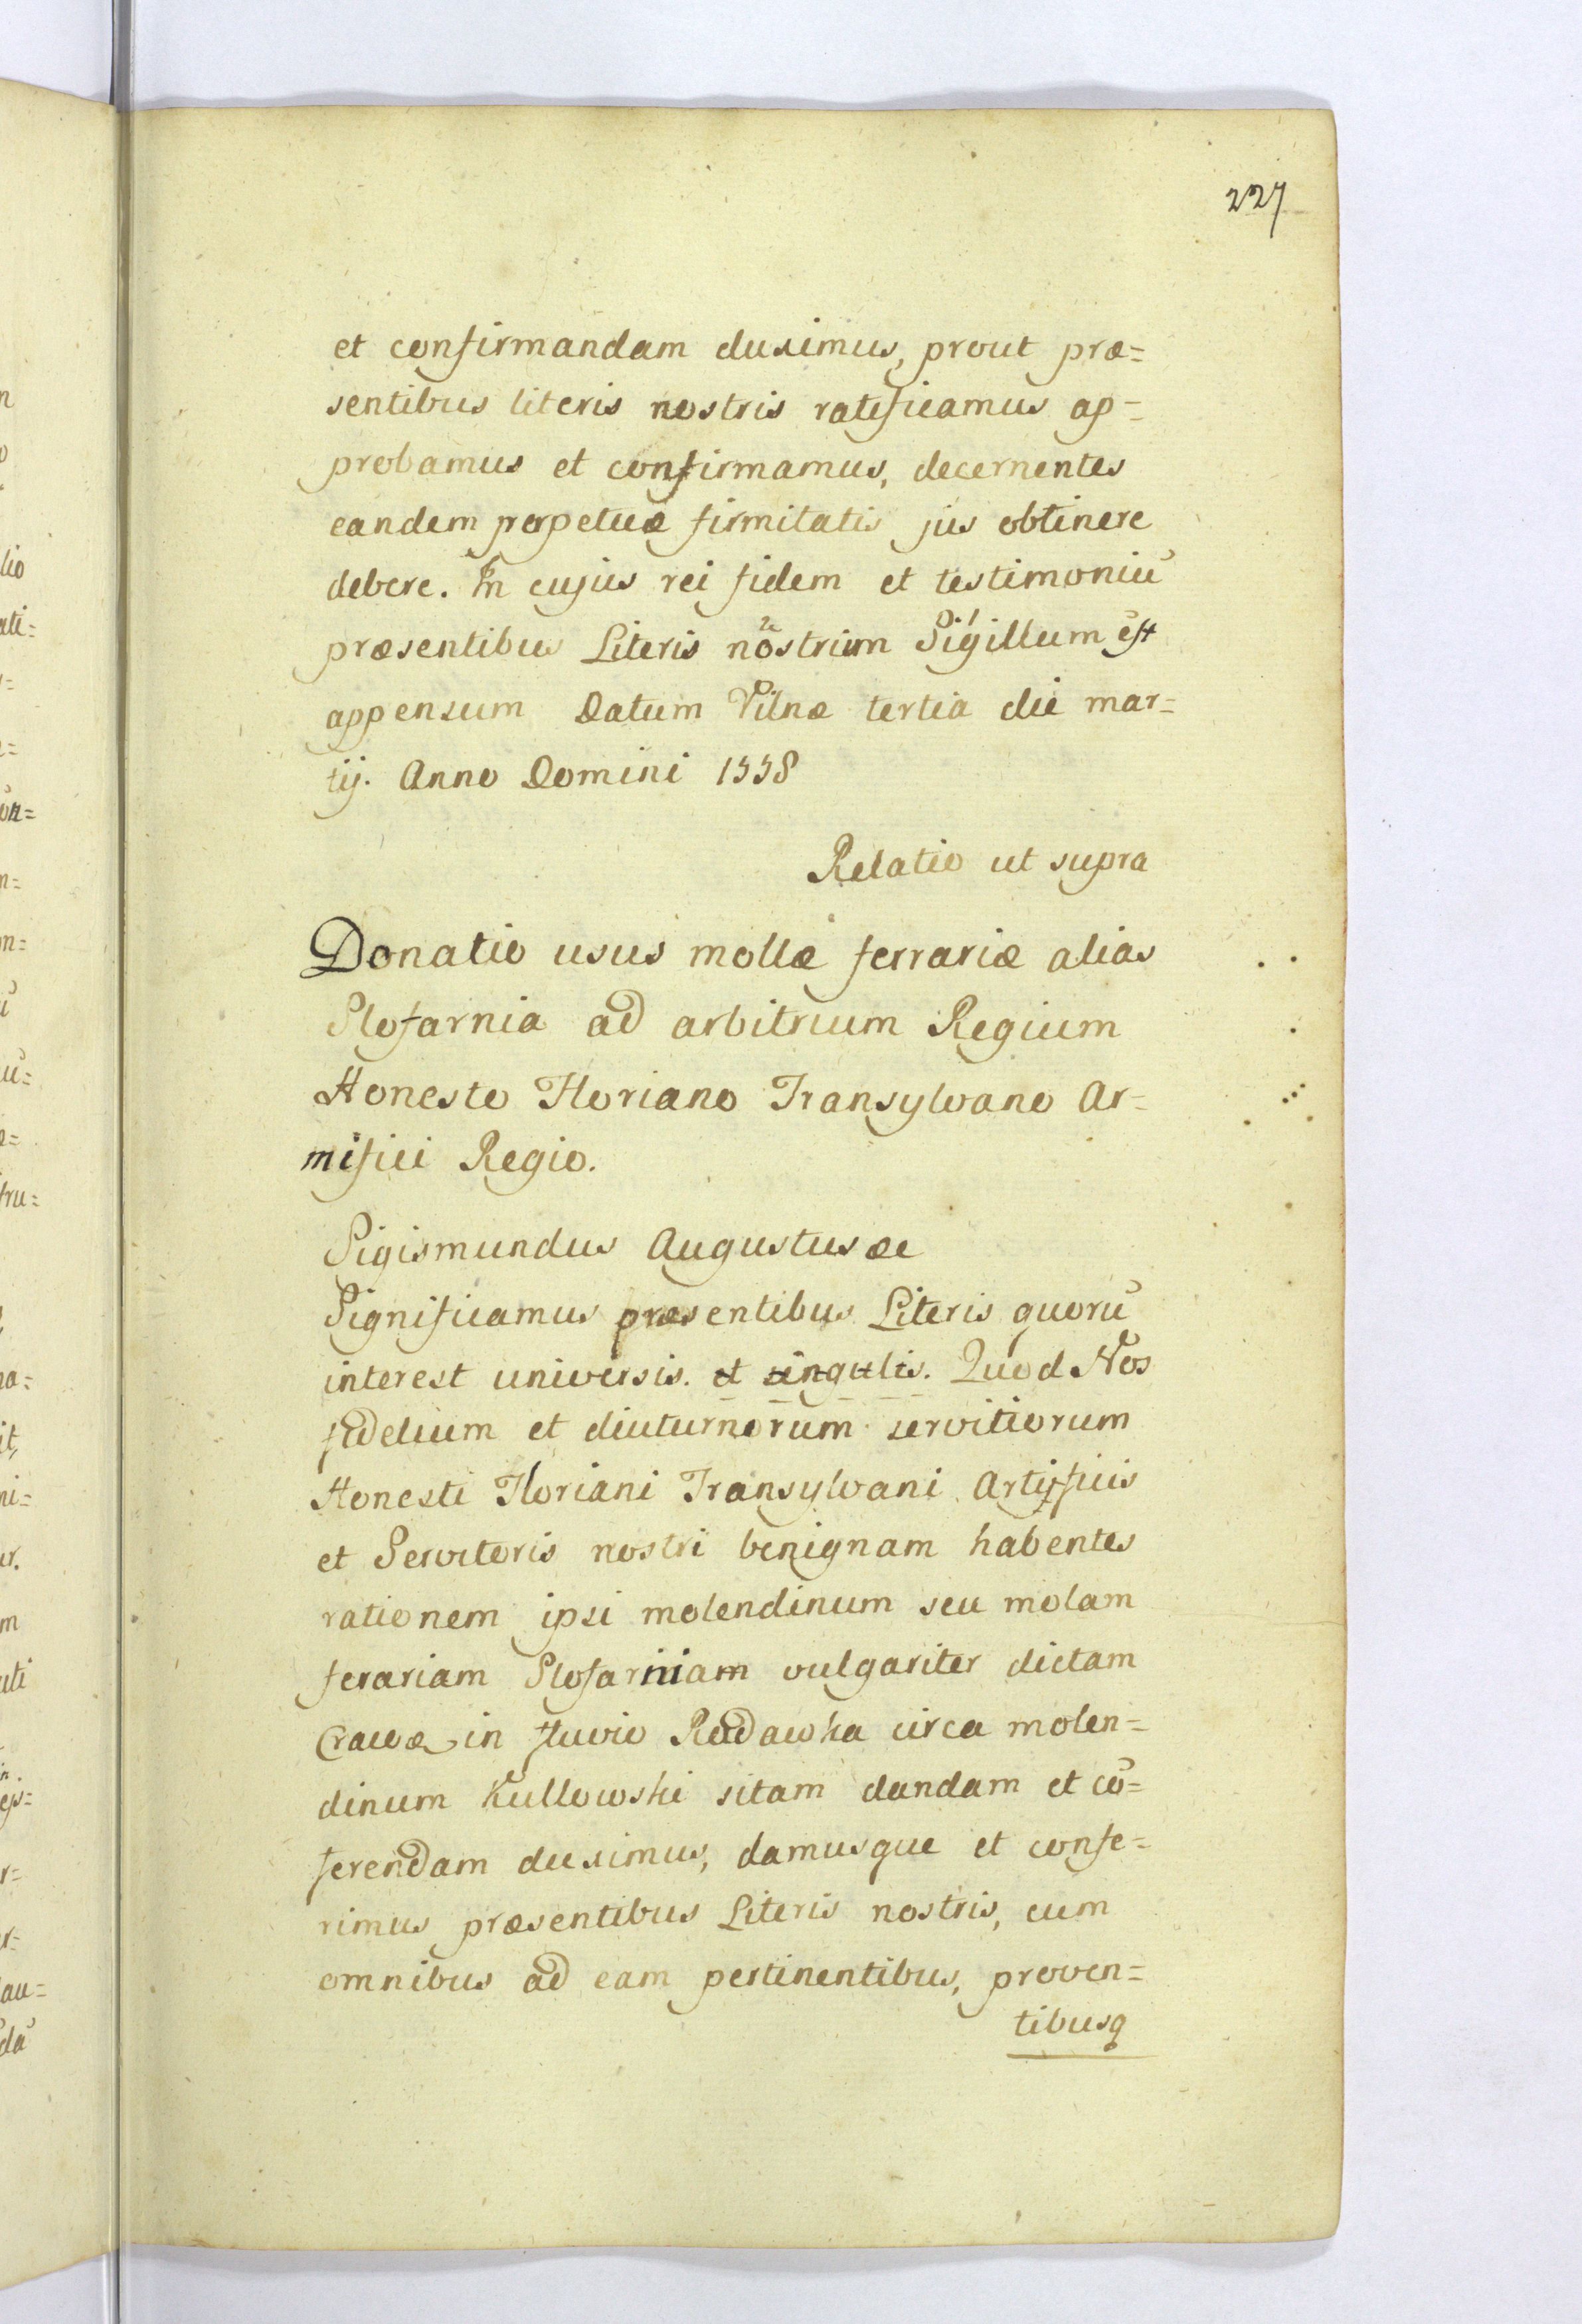 227
et confirmandam duximus, prout præ=
sentibus literis nostris ratificamus ap=
probamus et confirmamus, decernentes
eandem perpetuæ firmitatis jus obtinere
debere. In cujus rei fidem et testimoniũ
præsentibus Literis nostrum Sigillum est
appensum Datum Vilnæ tertia die mar=
tij. Anno Domini 1558
Relatio ut supra
Donatio usus mollæ ferrariæ alias
Slofarnia ad arbitrium Regium
Honesto Floriano Transylvano Ar=
mifici Regio.
Sigismundus Augustus &c
Significamus præsentibus Literis quorũ
interest universis. et singulis. Quod Nos
fidelium et diuturnorum servitiorum
Honesti Floriani Transylvani Artificis
et Servitoris nostri benignam habentes
rationem ipsi molendinum seu molam
ferariam Slofarniam vulgariter dictam
Cracoæ in fluvio Rudawka circa molen=
dinum Kutlowski sitam dandam et cõ=
ferendam duximus, damusque et confe=
rimus præsentibus Literis nostris, cum
omnibus ad eam pertinentibus, proven=
tibusq